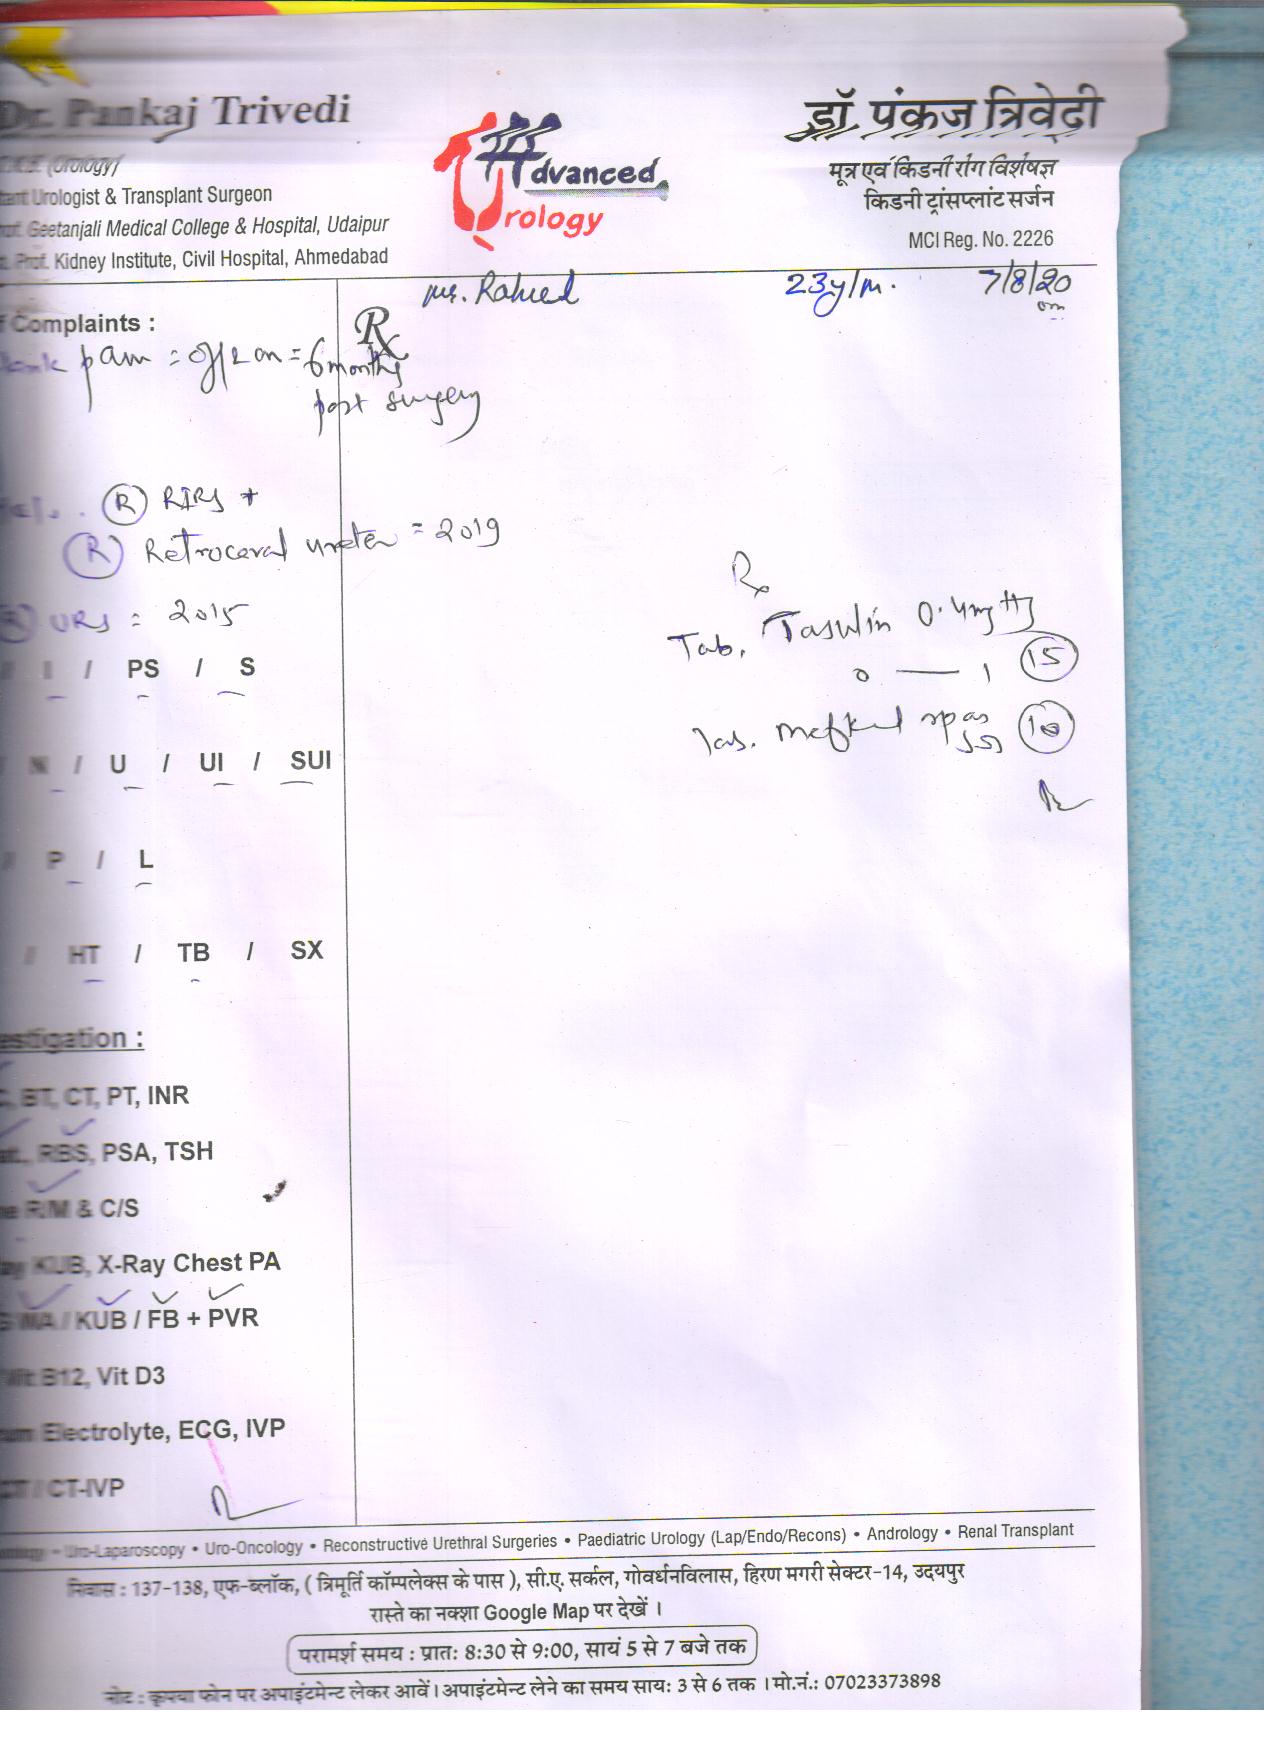 Dr. Pankaj Trivedi
(Urology)
Urologist & Transplant Surgeon
Geetanjali Medical College & Hospital, Udaipur
Prof. Kidney Institute, Civil Hospital, Ahmedabad
Advanced
Urology
डॉ. पंकज त्रिवेदी
मूत्र एवं किडनी रोग विशेषज्ञ
किडनी ट्रांसप्लांट सर्जन
MCI Reg. No. 2226
Mr. 23y/M. 7/8/20
Complaints :
Rx
pain = off & on = 6 months
post surgery
(R) RIRS +
(R) Retrocaval ureter = 2019
(R) URS = 2015
I / PS / S
N / U / UI / SUI
P / L
HT / TB / SX
Rx
Tab. Tasulin 0.4mg
0 — 1 (15)
Tab. Meftal spas (10)
BT, CT, PT, INR
RBS, PSA, TSH
R/M & C/S
KUB, X-Ray Chest PA
WA / KUB / FB + PVR
Vit B12, Vit D3
Electrolyte, ECG, IVP
CT / CT-IVP
Uro-Laparoscopy • Uro-Oncology • Reconstructive Urethral Surgeries • Paediatric Urology (Lap/Endo/Recons) • Andrology • Renal Transplant
निवास : 137-138, एफ-ब्लॉक, ( त्रिमूर्ति कॉम्पलेक्स के पास ), सी.ए. सर्कल, गोवर्धनविलास, हिरण मगरी सेक्टर-14, उदयपुर
रास्ते का नक्शा Google Map पर देखें ।
परामर्श समय : प्रातः 8:30 से 9:00, सायं 5 से 7 बजे तक
नोट : कृपया फोन पर अपाइंटमेन्ट लेकर आवें। अपाइंटमेन्ट लेने का समय सायः 3 से 6 तक । मो.नं.: 07023373898